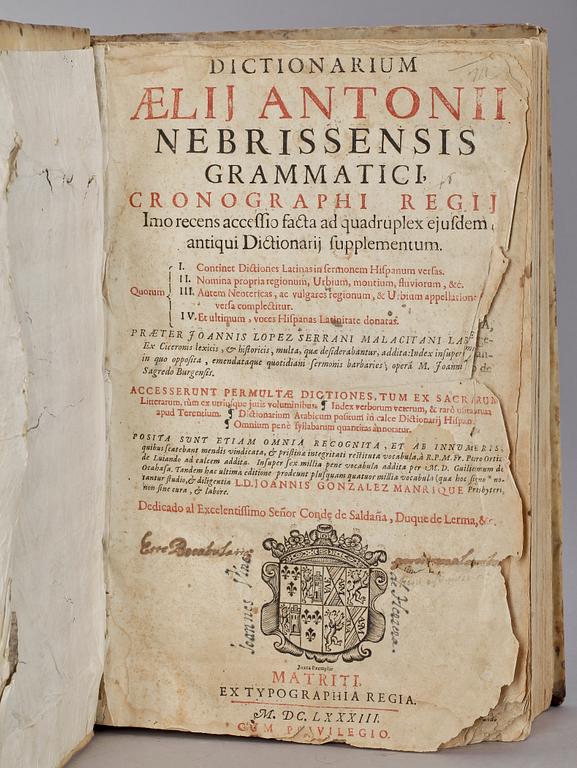 DICTIONARIUM
ÆLIJ ANTONII
NEBRISSENSIS
GRAMMATICI,
CRONOGRAPHI REGIJ
Imo recens accessio facta ad quadruplex ejusdem
antiqui Dictionarij supplementum.
Quorum
I. Continet Dictiones Latinas in sermonem Hispanum versas.
II. Nomina propria regionum, Urbium, montium, fluviorum, &c.
III. Autem Neotericas, ac vulgares regionum, & Urbium appellatione
versa complectitur.
IV. Et ultimum, voces Hispanas Latinitate donatas.
PRÆTER JOANNIS LOPEZ SERRANI MALACITANI
Ex Ciceronis lexicis, & historicis, multa, quæ desiderabantur, addita: Index insuper
in quo opposita, emendataque quotidiani sermonis barbaries, operâ M. Joanni
Sagredo Burgensis.
ACCESSERUNT PERMULTÆ DICTIONES, TUM EX SACRARUM
Litterarum, tùm ex utriusque juris voluminibus. ¶ Index verborum veterum, & rarò
apud Terencium. ¶ Dictionarium Arabicum positum in calce Dictionarij Hispan.
¶ Omnium penè syllabarum quantitas annotatur.
POSITA SUNT ETIAM OMNIA RECOGNITA, ET AB INNUMERIS,
quibus scatebant mendis vindicata, & pristinæ integritati restituta vocabula, à R.P.M. Fr. Petro Ortiz
de Luiando ad calcem addita. Insuper sex millia penè vocabula addita per M.D. Guilielmum de
Ocahasa. Tandem hac ultima editione prodeunt plusquam quatuor millia vocabula (qua hoc signo * no-
tantur studio, & diligentia L.D. JOANNIS GONZALEZ MANRIQUE Presbyteri,
non sine cura, & labore.
Dedicado al Excelentissimo Señor Conde de Saldaña, Duque de Lerma, &c.
MATRITI.
EX TYPOGRAPHIA REGIA.
M. DC. LXXXIII.
CUM PRIVILEGIO.